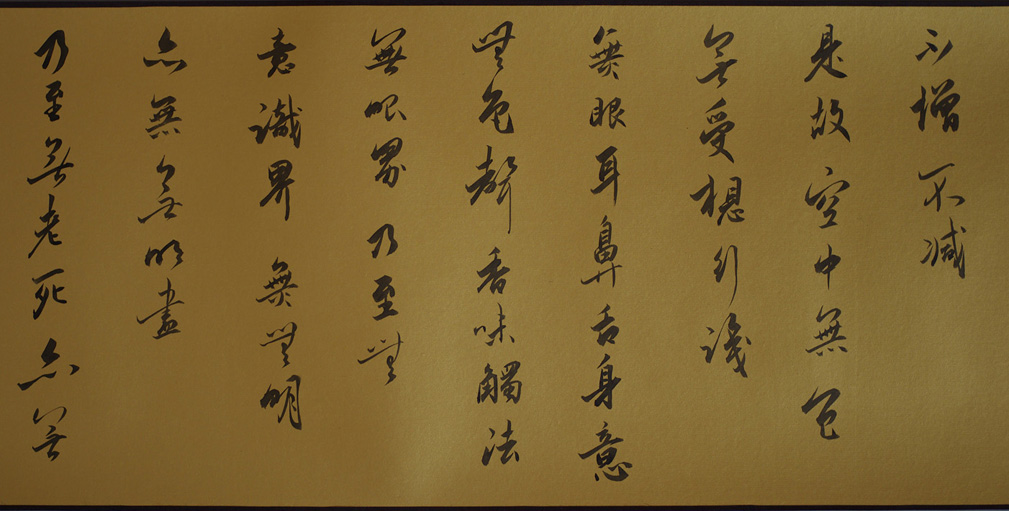 不增不减
是故空中無色
無受想行識
無眼耳鼻舌身意
無色聲香味觸法
無眼界乃至無
意識界無無明
亦無無明盡
乃至無老死亦無